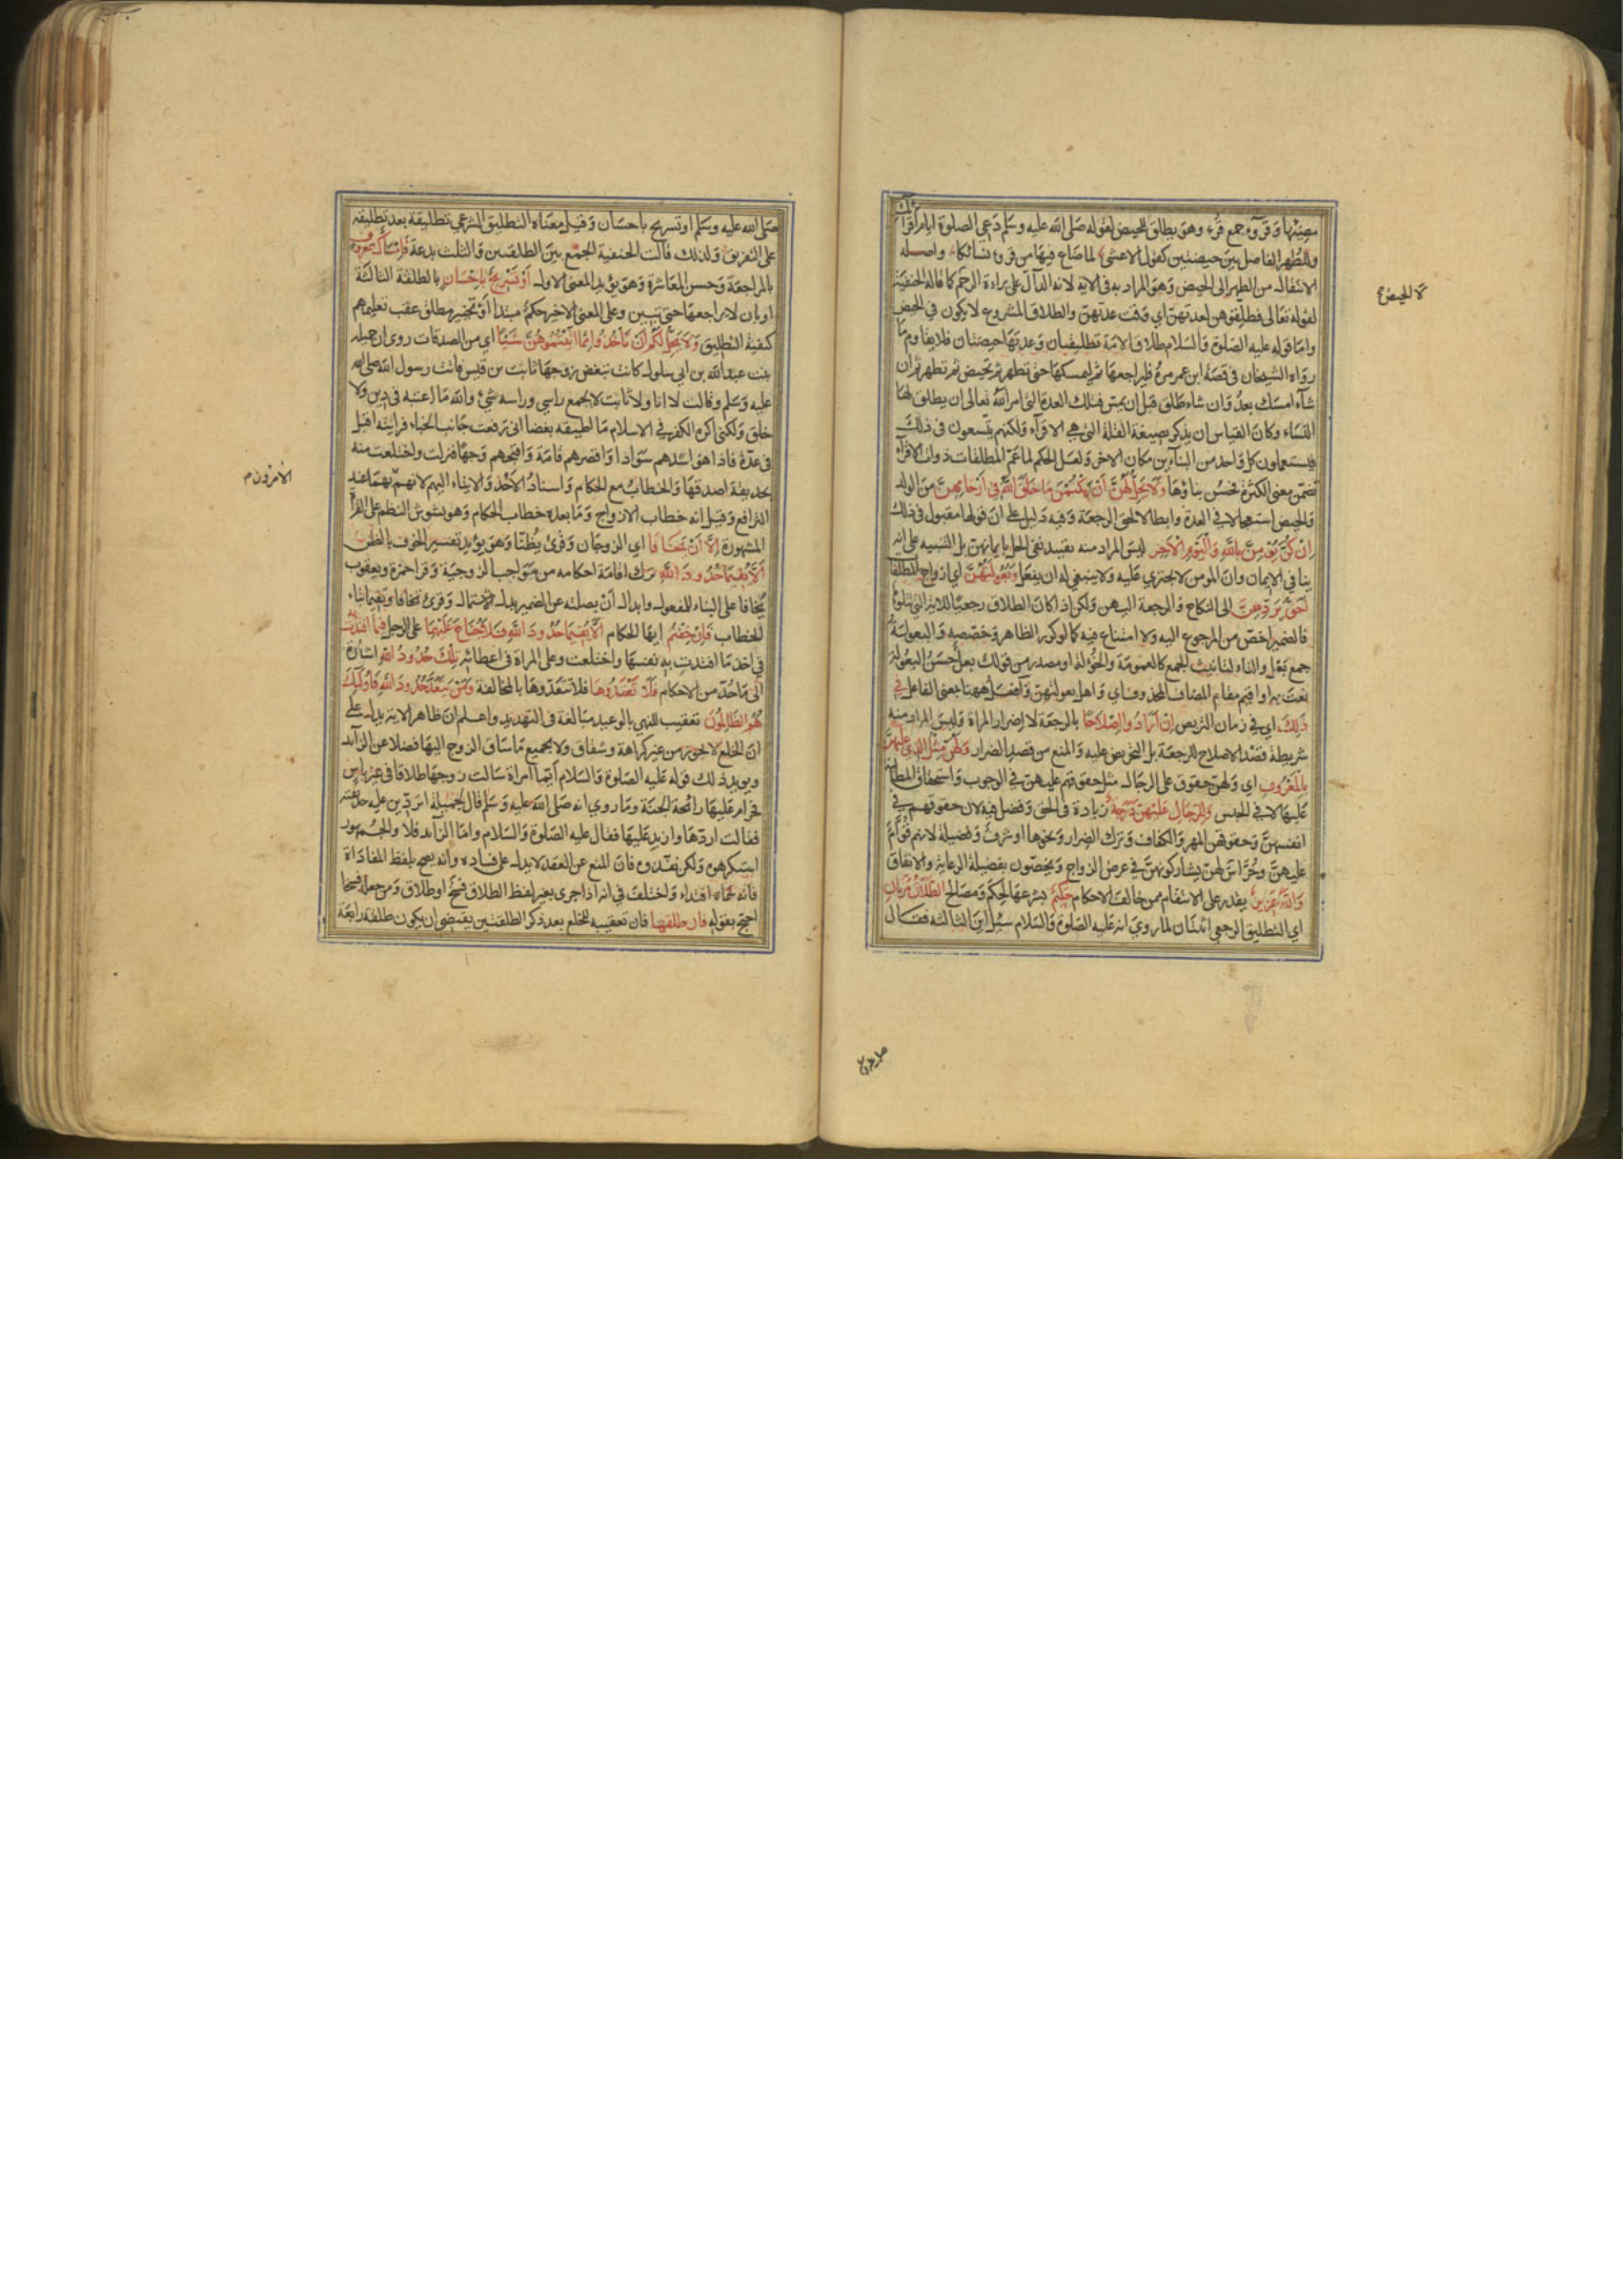 مضيها وقروء جمع قرء وهو يطلق للحيض لقوله صلى الله عليه وسلم دعي الصلوة ايام اقرائك
وللطهر الفاصل بين حيضتين كقول الاعشى لما ضاع فيها من قروء نسائكا واصله
الانتقال من الطهر الى الحيض وهو المراد به في الاية لانه الدال على براءة الرحم كما قاله الحنفية
لا الحيض
لقوله تعالى فطلقوهن لعدتهن اي وقت عدتهن والطلاق المشروع لا يكون في الحيض
واما قوله عليه الصلوة والسلام طلاق الامة تطليقتان وعدتها حيضتان فلا يقاوم ما
رواه الشيخان في قصة ابن عمر مره فليراجعها ثم ليمسكها حتى تطهر ثم تحيض ثم تطهر ثم ان
شاء امسك بعد وان شاء طلق قبل ان يمس فتلك العدة التي امر الله تعالى ان يطلق لها
النساء وكان القياس ان يذكر بصيغة القلة التي هي الاقراء ولكنهم يتسعون في ذلك
فيستعملون كل واحد من البنائين مكان الاخر ولعل الحكم لما عم المطلقات ذوات الاقراء
تضمن معنى الكثرة فحسن بناؤها ولا يحل لهن ان يكتمن ما خلق الله في ارحامهن من الولد
والحيض استعجالا في العدة وابطالا لحق الرجعة وفيه دليل على ان قولها مقبول في ذلك
ان كن يؤمن بالله واليوم الاخر ليس المراد منه تقييد نفي الحل بايمانهن بل التنبيه على انه
ينافي الايمان وان المومن لا يجتري عليه ولا ينبغي له ان يفعل وبعولتهن اي ازواج المطلقات
احق بردهن الى النكاح والرجعة اليهن ولكن اذا كان الطلاق رجعيا للاية التي تتلوها
فالضمير اخص من المرجوع اليه ولا امتناع فيه كما لو كرر الظاهر وخصصه والبعولة
جمع بعل والتاء لتانيث الجمع كالعمومة والخؤلة او مصدر من قولك بعل حسن البعولة
نعت به او اقيم مقام المضاف المحذوف اي واهل بعولتهن وافعل ههنا بمعنى الفاعل في
ذلك اي في زمان التربص ان ارادوا اصلاحا بالرجعة لا اضرار المراة وليس المراد منه
شريطة قصد الاصلاح للرجعة بل التحريض عليه والمنع من قصد الضرار ولهن مثل الذي عليهن
بالمعروف اي ولهن حقوق على الرجال مثل حقوقهم عليهن في الوجوب واستحقاق المطالبة
عليها لا في الجنس وللرجال عليهن درجة زيادة في الحق وفضل فيه لان حقوقهم في
انفسهن وحقوقهن المهر والكفاف وترك الضرار ونحوها او شرف وفضيلة لانهم قوام
عليهن وحراس لهن يشاركونهن في غرض الزواج ويخصون بفضيلة الرعاية والانفاق
والله عزيز يقدر على الانتقام ممن خالف الاحكام حكيم يشرعها لحكم ومصالح الطلاق مرتان
اي التطليق الرجعي اثنتان لما روي انه عليه الصلوة والسلام سئل اين الثالثة فقال
صلى الله عليه وسلم او تسريح باحسان وقيل معناه التطليق الشرعي تطليقة بعد تطليقة
على التفريق ولذلك قالت الحنفية الجمع بين الطلقتين والثلث بدعة فامساك بمعروف
بالمراجعة وحسن المعاشرة وهو يؤيد المعنى الاول او تسريح باحسان بالطلقة الثالثة
او بان لا يراجعها حتى تبين وعلى المعنى الاخير حكم مبتدا او تخيير مطلق عقب تعليمهم
كيفية التطليق ولا يحل لكم ان تاخذوا مما اتيتموهن شيئا اي من الصدقات روى ان جميلة
بنت عبد الله بن ابي سلول كانت تبغض زوجها ثابت بن قيس فاتت رسول الله صلى الله
عليه وسلم وقالت لا انا ولا ثابت لا يجمع راسي وراسه شيء والله ما اعتبه في دين ولا
خلق ولكني اكره الكفر في الاسلام ما اطيقه بغضا اني رفعت جانب الخباء فرايته اقبل
في عدة فاذا هو اشدهم سوادا واقصرهم قامة واقبحهم وجها فنزلت واختلعت منه
بحديقة اصدقها والخطاب مع الحكام واسناد الاخذ والايتاء اليهم لانهم بهما عند
الامرون م
الترافع وقيل انه خطاب الازواج وما بعده خطاب الحكام وهو يشوش النظم على القراءة
المشهورة الا ان يخافا اي الزوجان وقرئ يظنا وهو يؤيد تفسير الخوف بالظن
الا يقيما حدود الله بترك اقامة احكامه من مواجب الزوجية وقرا حمزة ويعقوب
يخافا على البناء للمفعول وابدال ان بصلته عن الضمير بدل الاشتمال وقرئ تخافا وتقيما بتاء
الخطاب فان خفتم ايها الحكام الا يقيما حدود الله فلا جناح عليهما على الرجل فيما افتدت به
في اخذ ما افتدت به نفسها واختلعت وعلى المراة في اعطائه تلك حدود الله اشارة
الى ما حد من الاحكام فلا تعتدوها فلا تتعدوها بالمخالفة ومن يتعد حدود الله فاولئك
هم الظالمون تعقيب للنهي بالوعيد مبالغة في التهديد واعلم ان ظاهر الاية يدل على
ان الخلع لا يجوز من غير كراهة وشقاق ولا بجميع ما ساق الزوج اليها فضلا عن الزائد
ويويد ذلك قوله عليه الصلوة والسلام ايما امراة سالت زوجها طلاقا في غير باس
فحرام عليها رائحة الجنة وما روي انه صلى الله عليه وسلم قال لجميلة اتردين عليه حديقته
فقالت اردها وازيد عليها فقال عليه الصلوة والسلام واما الزائد فلا والجمهور
استكرهوه ولكن نفذوه فان المنع عن العقد لا يدل على فساده وانه يصح بلفظ المفاداة
فانه سماه افتداء واختلف في انه اذا جرى بغير لفظ الطلاق فسخ او طلاق ومن جعله فسخا
احتج بقوله فان طلقها فان تعقيبه للخلع بعد ذكر الطلقتين يقتضي ان يكون طلقة رابعة